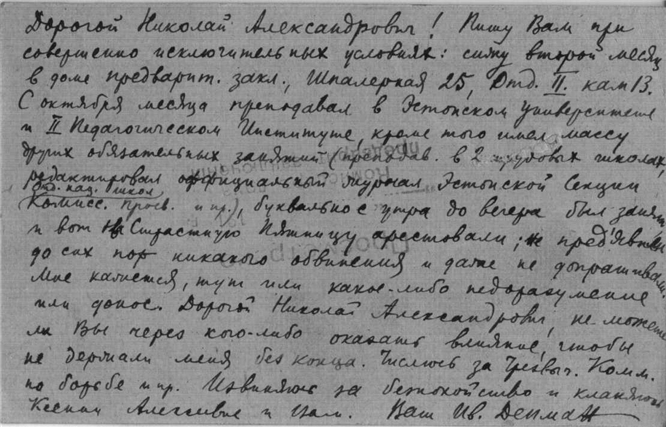 Дорогой Николай Александрович! Пишу Вам при
совершенно исключительных условиях: сижу второй месяц
в доме предварит. закл., Шпалерная 25, Отд. II. кам 13.
С октября месяца преподавал в Эстонском университете
и II Педагогическом Институте, кроме того имел массу
других обязательных занятий (преподав. в 2 трудовых школах,
редактировал официальный журнал Эстонской Секции
Комисс. просв. и пр.), буквально с утра до вечера был занят
и вот на Страстную Пятницу арестовали; не предъявили
до сих пор никакого обвинения и даже не допрашивали.
Мне кажется, тут или какое-либо недоразумение
или донос. Дорогой Николай Александрович, не можете
ли Вы через кого-либо оказать влияние, чтобы
не держали меня без конца. Числюсь за Чрезвыч. Комм.
по борьбе и пр. Извиняюсь за беспокойство и кланяюсь
Ксении Алексеевне и Вам. Ваш Ив. Депман